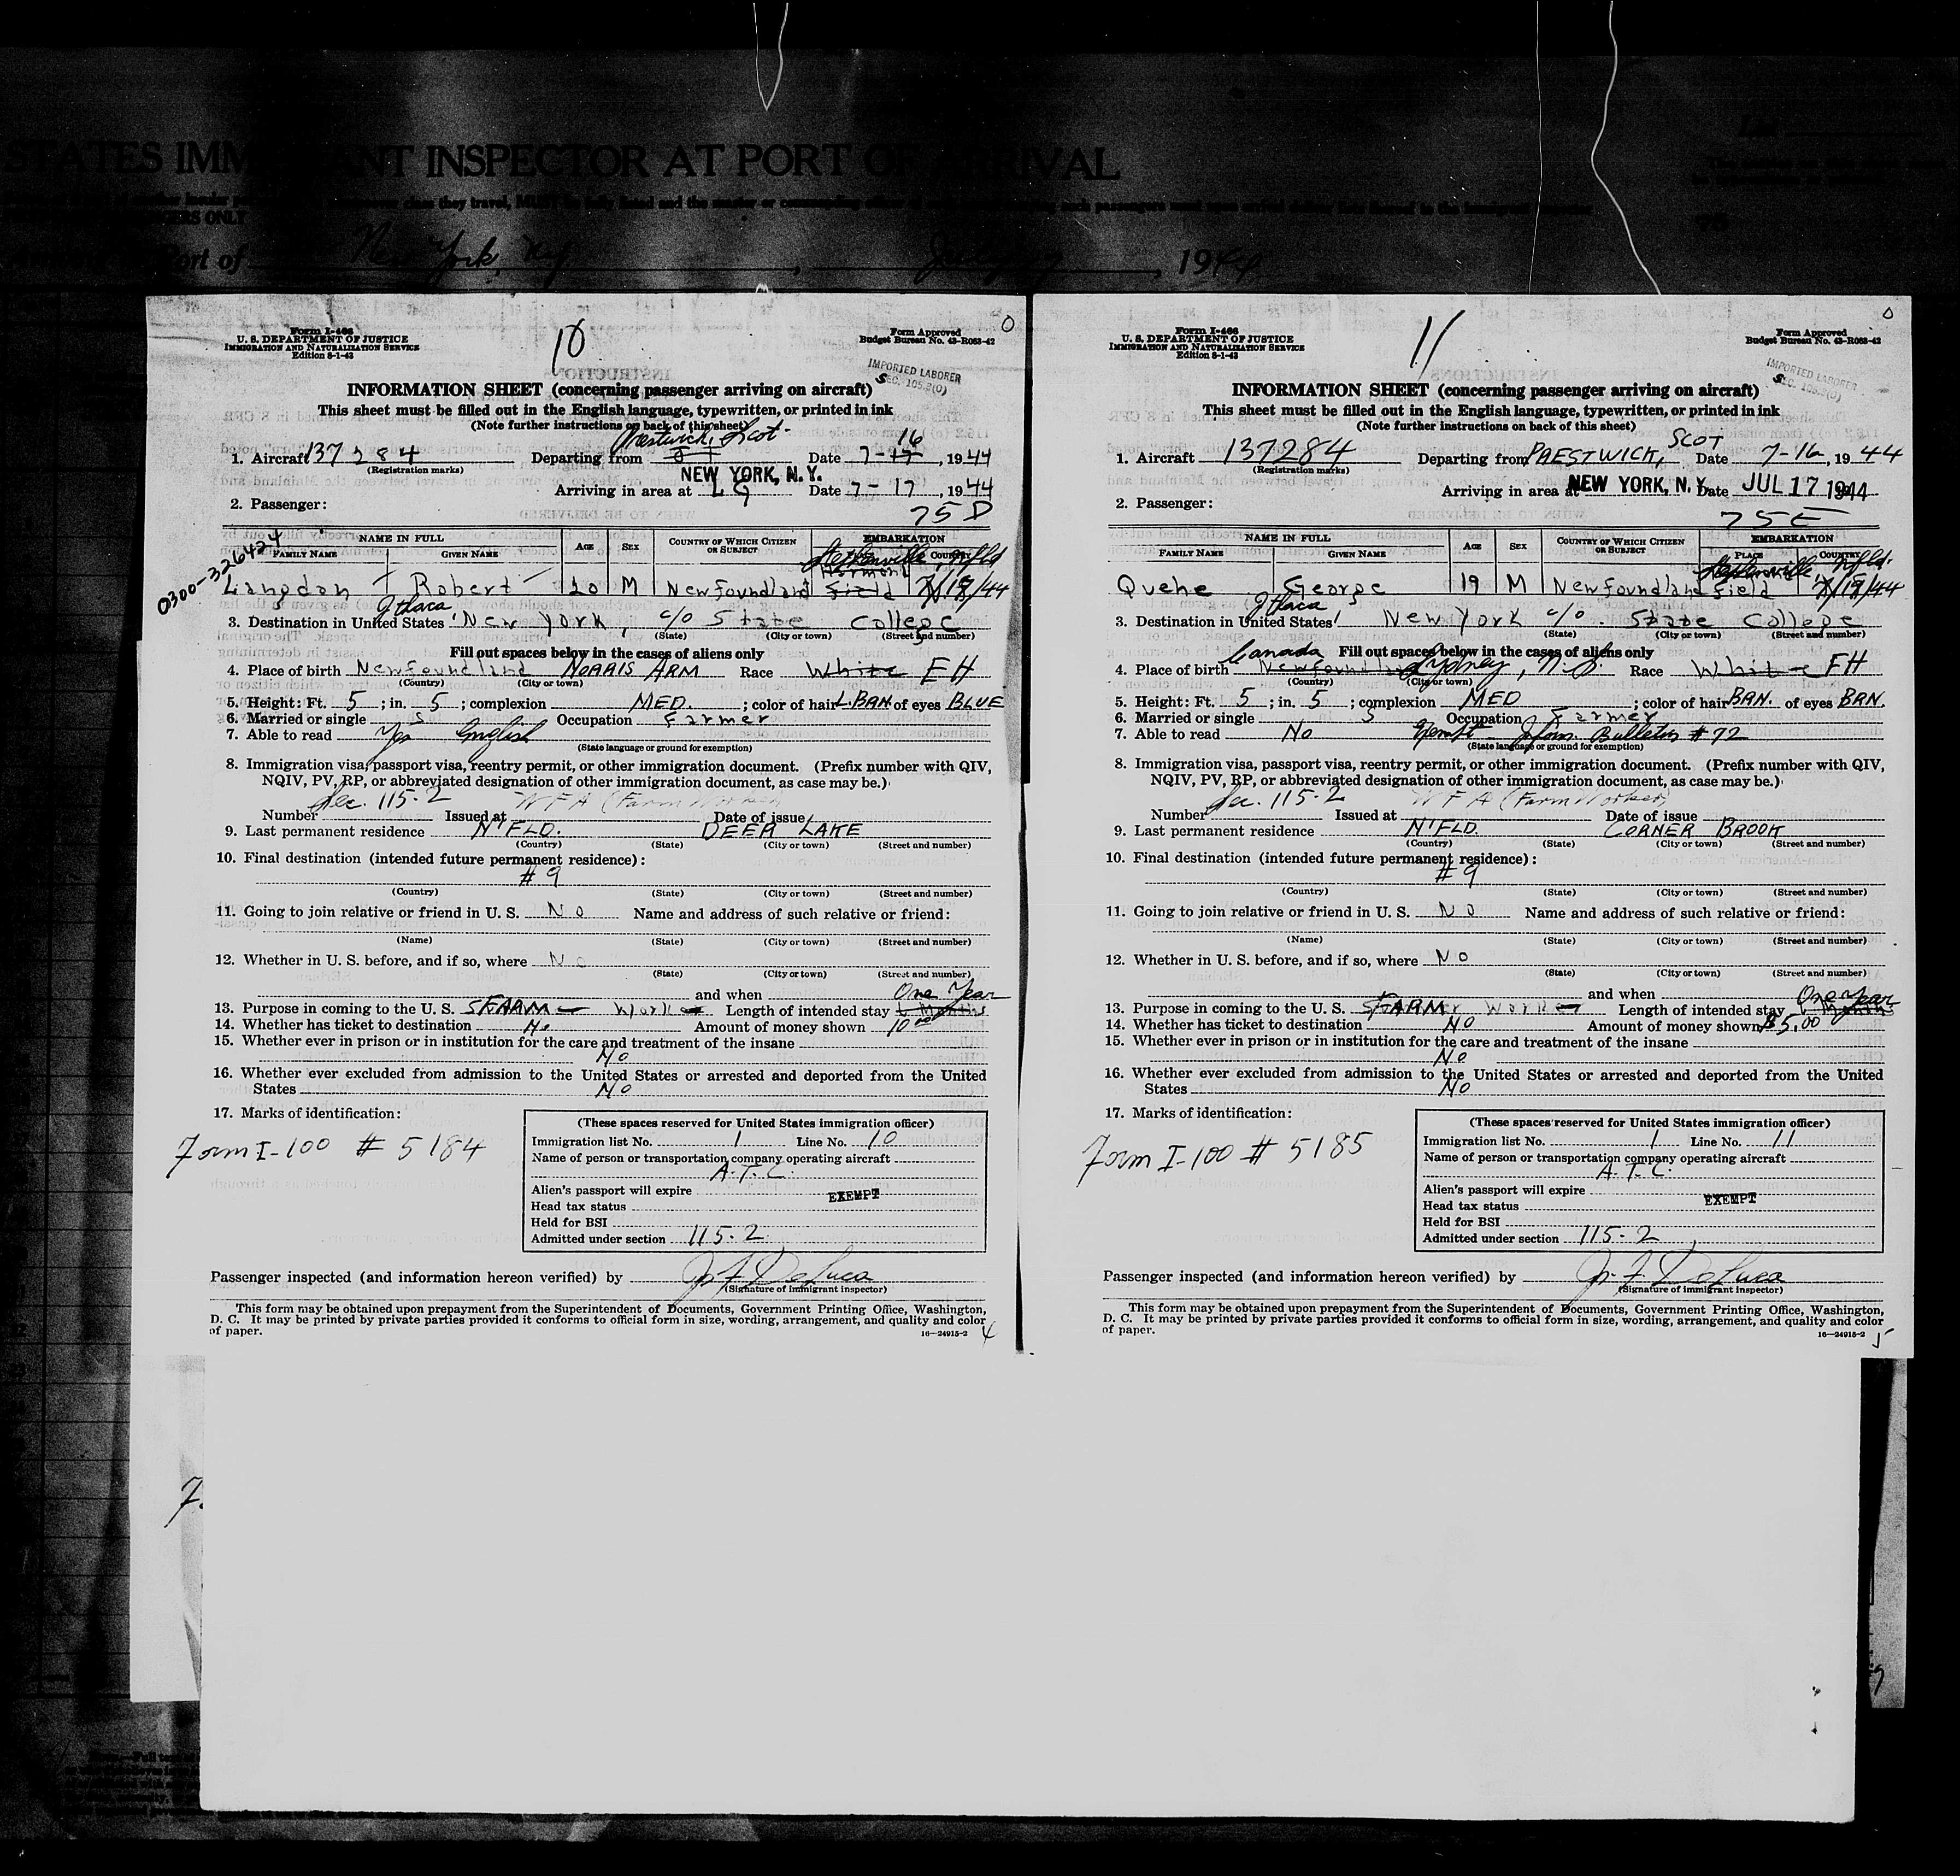 STATES IMM ANT INSPECTOR AT PORT OF ARRIVAL
Port of New York, N.Y. , July , 1944
10
Form I-466
U. S. DEPARTMENT OF JUSTICE
IMMIGRATION AND NATURALIZATION SERVICE
Edition 8-1-43
Form Approved
Budget Bureau No. 43-R063-42
IMPORTED LABORER
SEC. 105.2(0)
INFORMATION SHEET (concerning passenger arriving on aircraft)
This sheet must be filled out in the English language, typewritten, or printed in ink
(Note further instructions on back of this sheet)
Prestwick, Scot. 16
1. Aircraft 137284 Departing from Date 7-17, 1944
(Registration marks)
NEW YORK, N.Y.
Arriving in area at LG Date 7-17, 1944
2. Passenger: 75 D
0300-326424
NAME IN FULL AGE SEX COUNTRY OF WHICH CITIZEN OR SUBJECT EMBARKATION
FAMILY NAME GIVEN NAME PLACE COUNTRY
Stephenville, Nfld
Harmond
Langdon Robert 20 M Newfoundland Field 7/17/44
Ithaca
3. Destination in United States New York, c/o State College
(State) (City or town) (Street and number)
Fill out spaces below in the cases of aliens only
4. Place of birth Newfoundland NORRIS ARM Race White EH
(Country) (City or town)
5. Height: Ft. 5 ; in. 5 ; complexion MED. ; color of hair L.BRN. of eyes BLUE
6. Married or single S Occupation Farmer
7. Able to read Yes English
(State language or ground for exemption)
8. Immigration visa, passport visa, reentry permit, or other immigration document. (Prefix number with QIV,
NQIV, PV, RP, or abbreviated designation of other immigration document, as case may be.)
Sec. 115-2 WFA (Farm Worker)
Number Issued at Date of issue
9. Last permanent residence N'FLD. DEER LAKE
(Country) (State) (City or town) (Street and number)
10. Final destination (intended future permanent residence):
# 9
(Country) (State) (City or town) (Street and number)
11. Going to join relative or friend in U. S. No Name and address of such relative or friend:
(Name) (State) (City or town) (Street and number)
12. Whether in U. S. before, and if so, where No
(State) (City or town) (Street and number)
and when
One Year
13. Purpose in coming to the U. S. FARM Work Length of intended stay 6 Months
14. Whether has ticket to destination No Amount of money shown 10.00
15. Whether ever in prison or in institution for the care and treatment of the insane
No
16. Whether ever excluded from admission to the United States or arrested and deported from the United
States No
17. Marks of identification:
Form I-100 # 5184
(These spaces reserved for United States immigration officer)
Immigration list No. 1 Line No. 10
Name of person or transportation company operating aircraft
A.T.C.
Alien's passport will expire EXEMPT
Head tax status
Held for BSI
Admitted under section 115-2
Passenger inspected (and information hereon verified) by J. F. DeLuca
(Signature of immigrant inspector)
This form may be obtained upon prepayment from the Superintendent of Documents, Government Printing Office, Washington,
D. C. It may be printed by private parties provided it conforms to official form in size, wording, arrangement, and quality and color
of paper. 16—24915-2 4
11
Form I-466
U. S. DEPARTMENT OF JUSTICE
IMMIGRATION AND NATURALIZATION SERVICE
Edition 8-1-43
Form Approved
Budget Bureau No. 43-R063-42
IMPORTED LABORER
SEC. 105.2(0)
INFORMATION SHEET (concerning passenger arriving on aircraft)
This sheet must be filled out in the English language, typewritten, or printed in ink
(Note further instructions on back of this sheet)
SCOT
1. Aircraft 137284 Departing from PRESTWICK, Date 7-16, 1944
(Registration marks)
Arriving in area at NEW YORK, N.Y. Date JUL 17 1944
2. Passenger: 75 E
NAME IN FULL AGE SEX COUNTRY OF WHICH CITIZEN OR SUBJECT EMBARKATION
FAMILY NAME GIVEN NAME PLACE COUNTRY
Stephenville, Nfld.
Quehe George 19 M Newfoundland Field 7/17/44
Ithaca
3. Destination in United States New York c/o State College
(State) (City or town) (Street and number)
Fill out spaces below in the cases of aliens only
Canada
4. Place of birth Newfoundland Sydney, N.S. Race White EH
(Country) (City or town)
5. Height: Ft. 5 ; in. 5 ; complexion MED ; color of hair BRN. of eyes BRN.
6. Married or single S Occupation Farmer
7. Able to read No Exempt - Bulletin # 72
(State language or ground for exemption)
8. Immigration visa, passport visa, reentry permit, or other immigration document. (Prefix number with QIV,
NQIV, PV, RP, or abbreviated designation of other immigration document, as case may be.)
Sec. 115-2 WFA (Farm Worker)
Number Issued at Date of issue
9. Last permanent residence N'FLD. CORNER BROOK
(Country) (State) (City or town) (Street and number)
10. Final destination (intended future permanent residence):
# 9
(Country) (State) (City or town) (Street and number)
11. Going to join relative or friend in U. S. No Name and address of such relative or friend:
(Name) (State) (City or town) (Street and number)
12. Whether in U. S. before, and if so, where No
(State) (City or town) (Street and number)
and when
One Year
13. Purpose in coming to the U. S. FARM Work Length of intended stay 6 Months
14. Whether has ticket to destination NO Amount of money shown $5.00
15. Whether ever in prison or in institution for the care and treatment of the insane
No
16. Whether ever excluded from admission to the United States or arrested and deported from the United
States No
17. Marks of identification:
Form I-100 # 5185
(These spaces reserved for United States immigration officer)
Immigration list No. 1 Line No. 11
Name of person or transportation company operating aircraft
A.T.C.
Alien's passport will expire EXEMPT
Head tax status
Held for BSI
Admitted under section 115-2
Passenger inspected (and information hereon verified) by J. F. DeLuca
(Signature of immigrant inspector)
This form may be obtained upon prepayment from the Superintendent of Documents, Government Printing Office, Washington,
D. C. It may be printed by private parties provided it conforms to official form in size, wording, arrangement, and quality and color
of paper. 16—24915-2 5